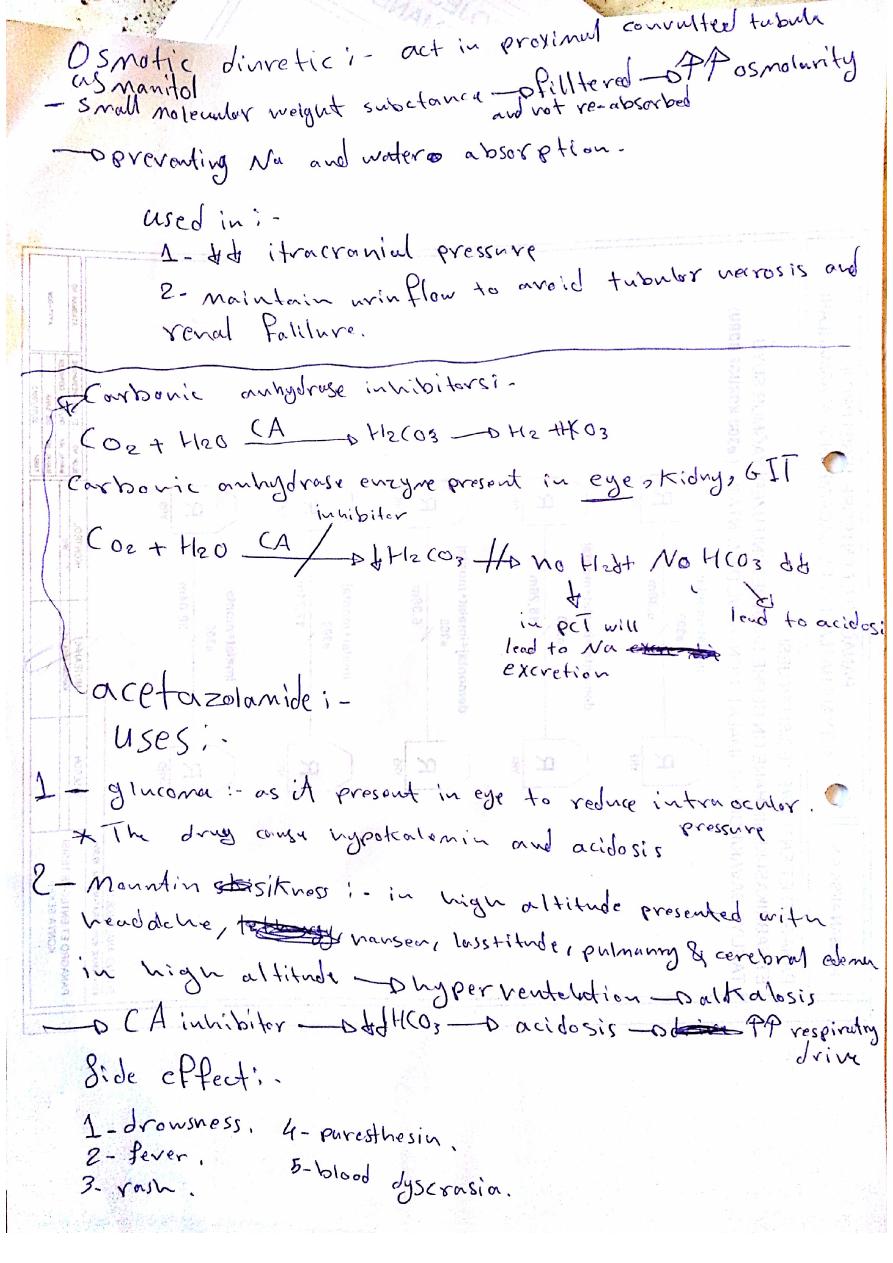 Osmotic diuretic :- act in proximul convulted tubule
as manitol
- small molecular weight subctance → filltered → ↑↑ osmolarity
and not re-absorbed
→ preventing Na and water absorption.
used in :-
1- ↓↓ itracranial pressure
2- maintain urin flow to avoid tubular necrosis and
renal falilure.
Carbonic anhydrase inhibitors :-
CO2 + H2O CA → H2CO3 → H2 + HCO3
Carbonic anhydrase enzyme present in eye, kidny, GIT
inhibiter
CO2 + H2O CA → ↓ H2CO3 → no H2 ↓+ No HCO3 ↓↓
↓ ↓
in PCT will lead to acidosi
lead to Na
excretion
acetazolamide :-
uses :-
1 - glucoma :- as it present in eye to reduce intraocular.
pressure
* The drug cause hypokalemia and acidosis
2 - Mountin sikness :- in high altitude presented with
headache, nausea, lasstitude, pulmunry & cerebral edema
in high altitude → hyperventelation → alkalosis
→ CA inhibiter → ↓↓ HCO3 → acidosis → ↑↑ respiratry
drive
Side effect :-
1- drowsness. 4- paresthesia.
2- fever. 5- blood dyscrasia.
3- rash.